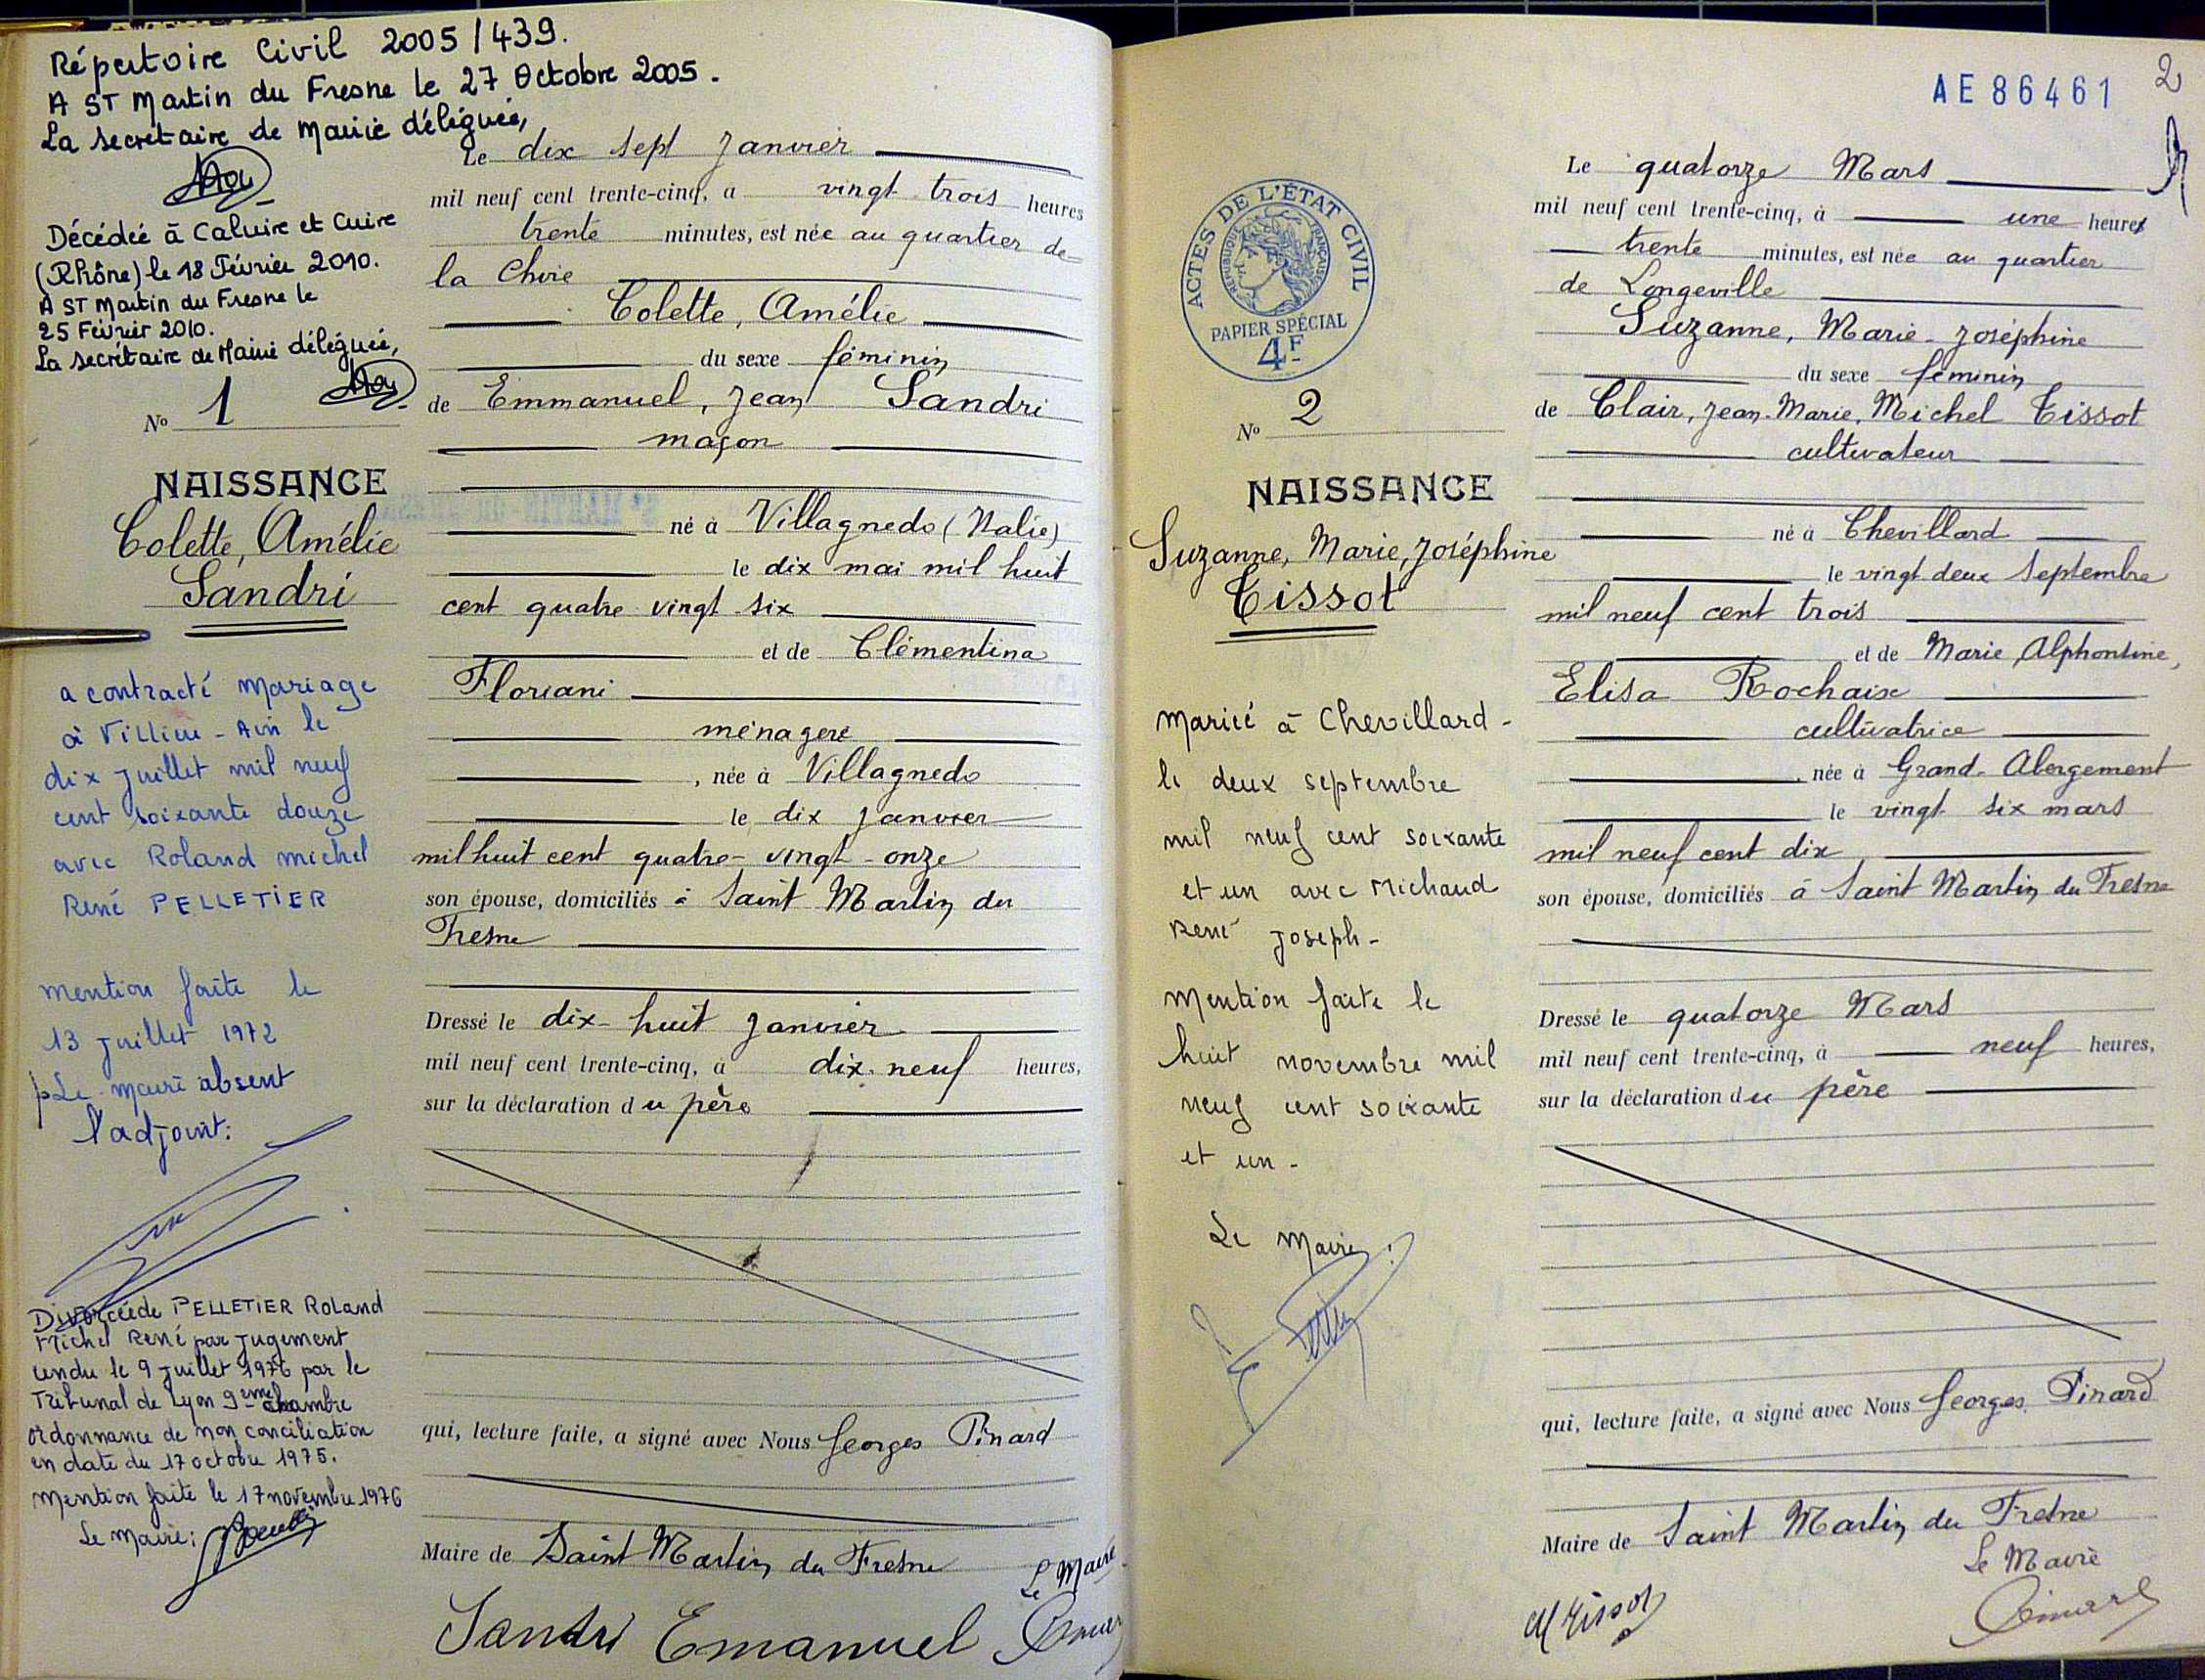 Répertoire Civil 2005/439.
A ST Martin du Fresne le 27 Octobre 2005.
La secrétaire de Mairie déléguée,
Décédée à Caluire et Cuire
(Rhône) le 18 Février 2010.
A ST Martin du Fresne le
25 Février 2010.
La secrétaire de Mairie déléguée,
No 1
NAISSANCE
Colette, Amélie
Sandri
a contracté mariage
à Villieu - Ain le
dix juillet mil neuf
cent soixante douze
avec Roland michel
René PELLETIER
mention faite le
13 juillet 1972
p Le maire absent
l'adjoint:
Divorcée de PELLETIER Roland
Michel René par jugement
rendu le 9 juillet 1976 par le
Tribunal de Lyon 9ème chambre
ordonnance de non conciliation
en date du 17 octobre 1975.
Mention faite le 17 novembre 1976
Le Maire:
Le dix sept Janvier
mil neuf cent trente-cinq, à vingt trois heures
trente minutes, est née au quartier de
la Choie
Colette, Amélie
du sexe féminin
de Emmanuel, Jean Sandri
maçon
né à Villagnedo (Italie)
le dix mai mil huit
cent quatre vingt six
et de Clémentina
Floriani
ménagère
, née à Villagnedo
le dix Janvier
mil huit cent quatre-vingt-onze
son épouse, domiciliés à Saint Martin du
Fresne
Dressé le dix-huit Janvier
mil neuf cent trente-cinq, à dix-neuf heures,
sur la déclaration du père
qui, lecture faite, a signé avec Nous Georges Pinard
Maire de Saint Martin du Fresne
Le Maire
Sandri Emanuel
AE 86461
2
ACTES DE L'ÉTAT CIVIL
RÉPUBLIQUE FRANÇAISE
PAPIER SPÉCIAL
4F
No 2
NAISSANCE
Suzanne, Marie, Joséphine
Tissot
mariée à Chevillard -
le deux septembre
mil neuf cent soixante
et un avec Michaud
René Joseph -
Mention faite le
huit novembre mil
neuf cent soixante
et un -
Le Maire:
Le quatorze Mars
mil neuf cent trente-cinq, à une heures
trente minutes, est née au quartier
de Longeville
Suzanne, Marie-Joséphine
du sexe féminin
de Clair, Jean-Marie, Michel Tissot
cultivateur
né à Chevillard
le vingt deux Septembre
mil neuf cent trois
et de Marie, Alphonsine,
Elisa Rochaix
cultivatrice
, née à Grand-Abergement
le vingt six mars
mil neuf cent dix
son épouse, domiciliés à Saint Martin du Fresne
Dressé le quatorze Mars
mil neuf cent trente-cinq, à neuf heures,
sur la déclaration du père
qui, lecture faite, a signé avec Nous Georges Pinard
Maire de Saint Martin du Fresne
Le Maire
Tissot
Pinard